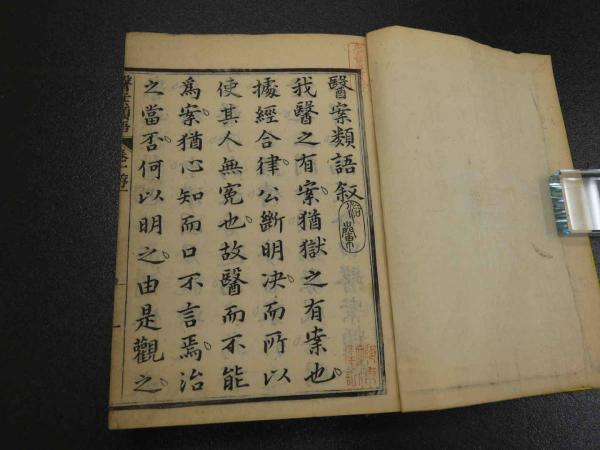 醫案類語叙
我醫之有案猶獄之有案也
據經合律公斷明决而所以
使其人無冤也故醫而不能
爲案猶心知而口不言焉治
之當否何以明之由是觀之